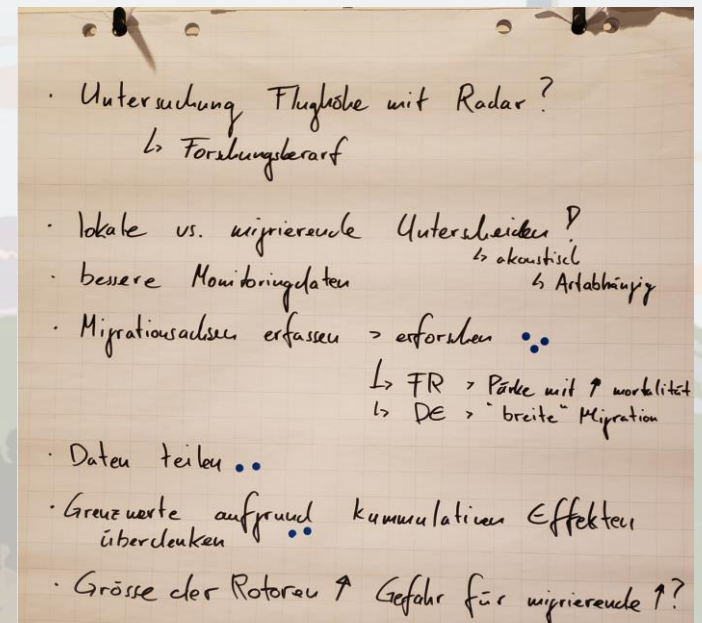 · Untersuchung Flughöhe mit Radar?
↳ Forschungsberarf
· lokale vs. migrierende Unterscheiden?
↳ akoustisch
· bessere Monitoringdaten
↳ Artabhängig
· Migrationsachsen erfassen > erforschen
↳ FR > Pärke mit ↑ mortalität
↳ DE > "breite" Migration
· Daten teilen
· Grenzwerte aufgrund kummulativen Effekten
überdenken
· Grösse der Rotoren ↑ Gefahr für migrierende ↑?